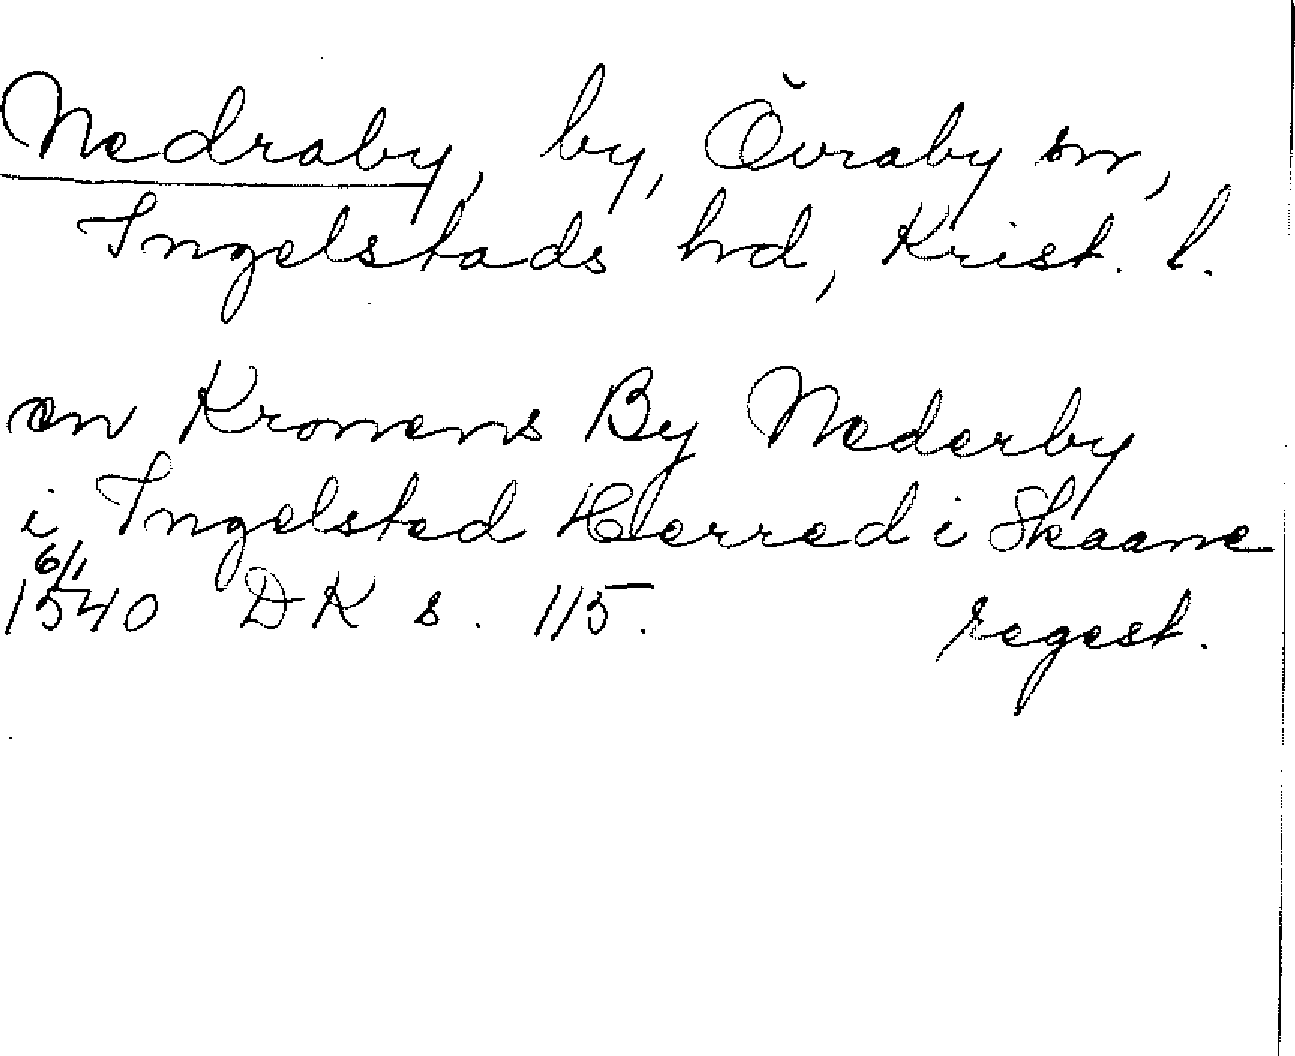 Nedraby, by, Övraby sn,
Ingelstads hd, Krist. l.
en Kronens By Nederby
i Ingelsted Herred i Skaane
6/1
1540 DK s. 115. regest.